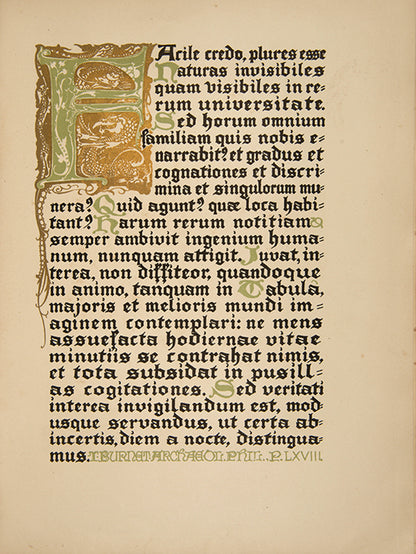 FAcile credo, plures esse
naturas invisibiles
quam visibiles in re-
rum universitate.
Sed horum omnium
familiam quis nobis e-
narrabit? et gradus et
cognationes et discri-
mina et singulorum mu-
nera? Quid agunt? quæ loca habi-
tant? Harum rerum notitiam
semper ambivit ingenium huma-
num, nunquam attigit. Juvat, in-
terea, non diffiteor, quandoque
in animo, tanquam in Tabula,
majoris et melioris mundi im-
aginem contemplari: ne mens
assuefacta hodiernae vitae
minutiis se contrahat nimis,
et tota subsidat in pusill-
as cogitationes. Sed veritati
interea invigilandum est, mod-
usque servandus, ut certa ab-
incertis, diem a nocte, distingua-
mus. T. BURNET. ARCHÆOL. PHIL. P. LXVIII